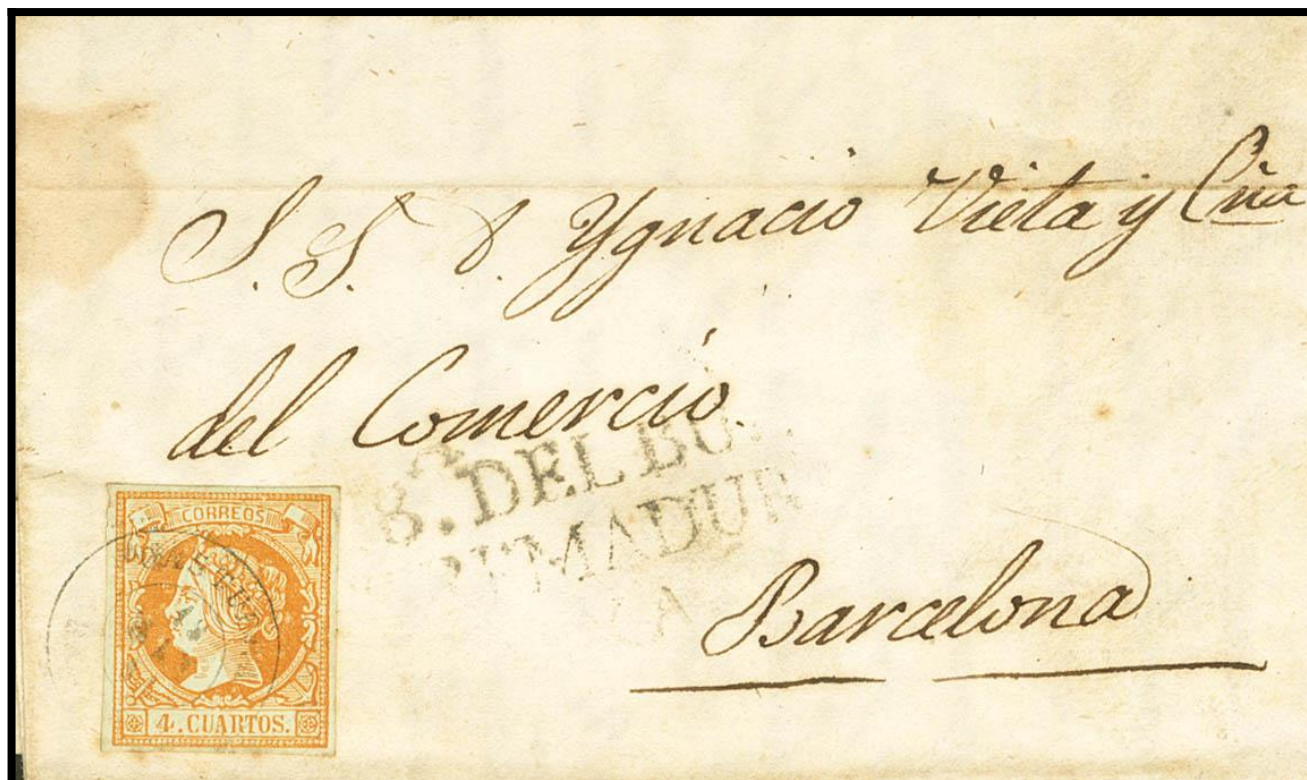 S. S. D. Ygnacio Vieta y Cña
del Comercio
DEL BU
Barcelona
CORREOS
4. CUARTOS.